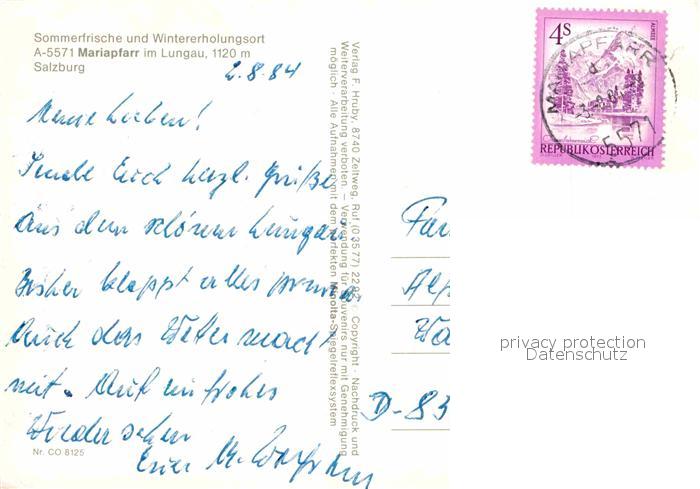 Sommerfrische und Wintererholungsort
A-5571 Mariapfarr im Lungau, 1120 m
Salzburg
2.8.84
Meine Lieben!
Sende Euch herzl. Grüße
aus dem schönen Lungau.
Bisher klappt alles prima
Auch das Wetter macht
mit. Auf ein frohes
Wiedersehen
Euer
Nr. CO 8125
Verlag F. Hruby, 8740 Zeltweg, Ruf (0 35 77) 22 Copyright - Nachdruck und
Weiterverarbeitung verboten. – Verwendung für Souvenirs nur mit Genehmigung
möglich - Alle Aufnahmen mit dem perfekten Minolta-Spiegelreflexsystem
4S
ALMSEE
REPUBLIK ÖSTERREICH
MARIAPFARR
5571
Fam
Alp
Wa
D-83
privacy protection
Datenschutz